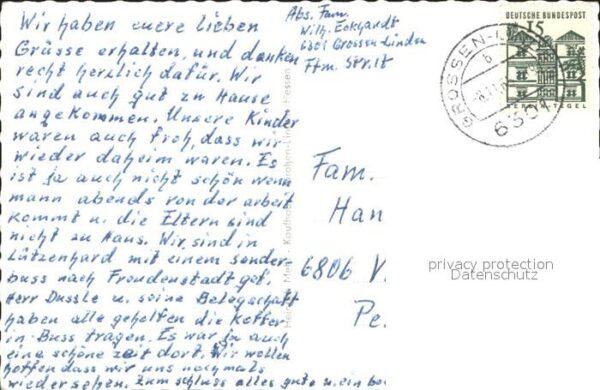 Wir haben euere lieben
Grüsse erhalten, und danken
recht herzlich dafür. Wir
sind auch gut zu Hause
angekommen. Unsere Kinder
waren auch froh, dass wir
wieder daheim waren. Es
ist ja auch nicht schön wenn
mann abends von der arbeit
kommt u. die Eltern sind
nicht zu Haus. Wir sind in
Lützenhard mit einem sonder-
buss nach Freudenstadt gef.
Herr Dussle u. seine Belegschaft
haben alle geholfen die Koffer
in Buss tragen. Es war ja auch
eine schöne zeit dort. Wir wollen
hoffen dass wir uns nochmals
wiedersehen. Zum schluss alles gute u. ein
Abs. Fam.
Wilh. Eckhardt
6301 Grossen Linden
Ffm. Str. 17
Fam.
Han
6806 V
Pe
DEUTSCHE BUNDESPOST
15
TEGEL
GROSSEN-L
b
6301
privacy protection
Datenschutz